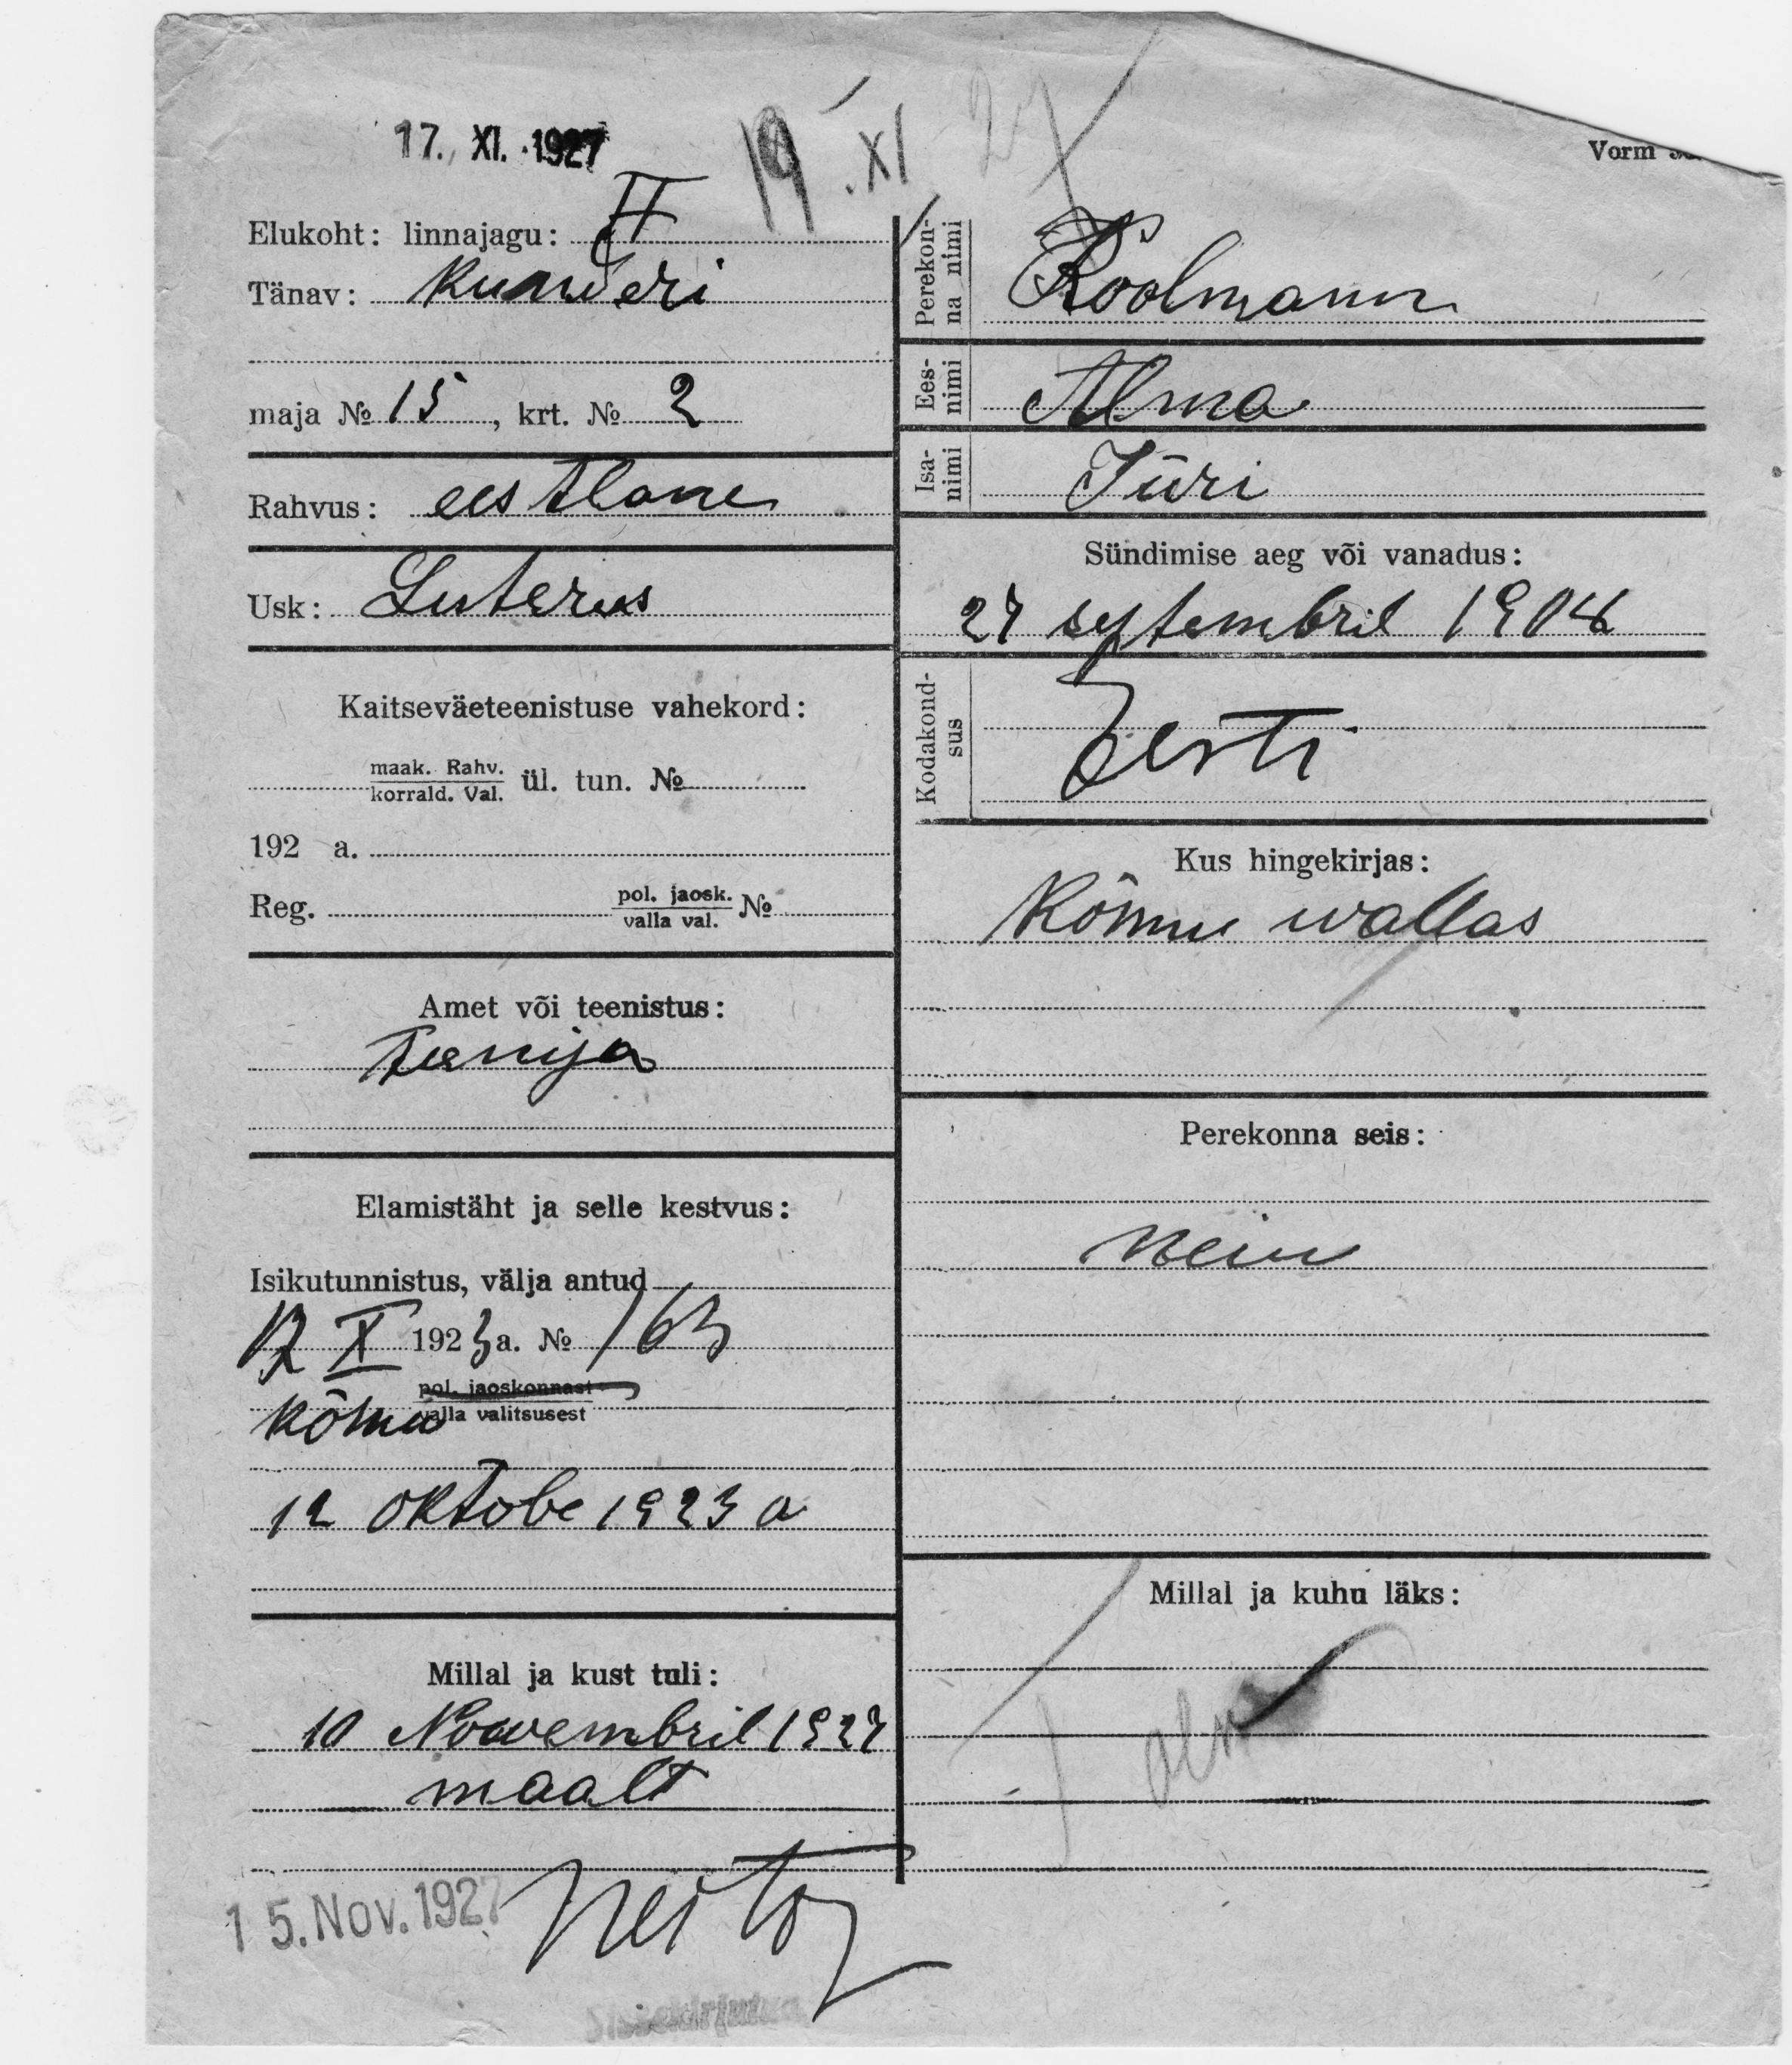 17. XI. 1927
19. XI 27
Vorm
Elukoht: linnajagu: II
Tänav: Kunderi
maja № 15, krt. № 2
Rahvus: eestlane
Usk: Luterus
Kaitseväeteenistuse vahekord:
maak. Rahv.
korrald. Val. ül. tun. №
192 a.
Reg. pol. jaosk.
valla val. №
Amet või teenistus:
teenija
Elamistäht ja selle kestvus:
Isikutunnistus, välja antud
12 X 1923 a. № 163
pol. jaoskonnast
Kõmu valla valitsusest
12 oktobe 1923 a
Millal ja kust tuli:
10 Noovembril 1927
maalt
15. Nov. 1927
Perekon-
na nimi
Koolmann
Ees-
nimi
Alma
Isa-
nimi
Jüri
Sündimise aeg või vanadus:
27 septembril 1904
Kodakond-
sus
Eesti
Kus hingekirjas:
Kõmu wallas
Perekonna seis:
Neiu
Millal ja kuhu läks: